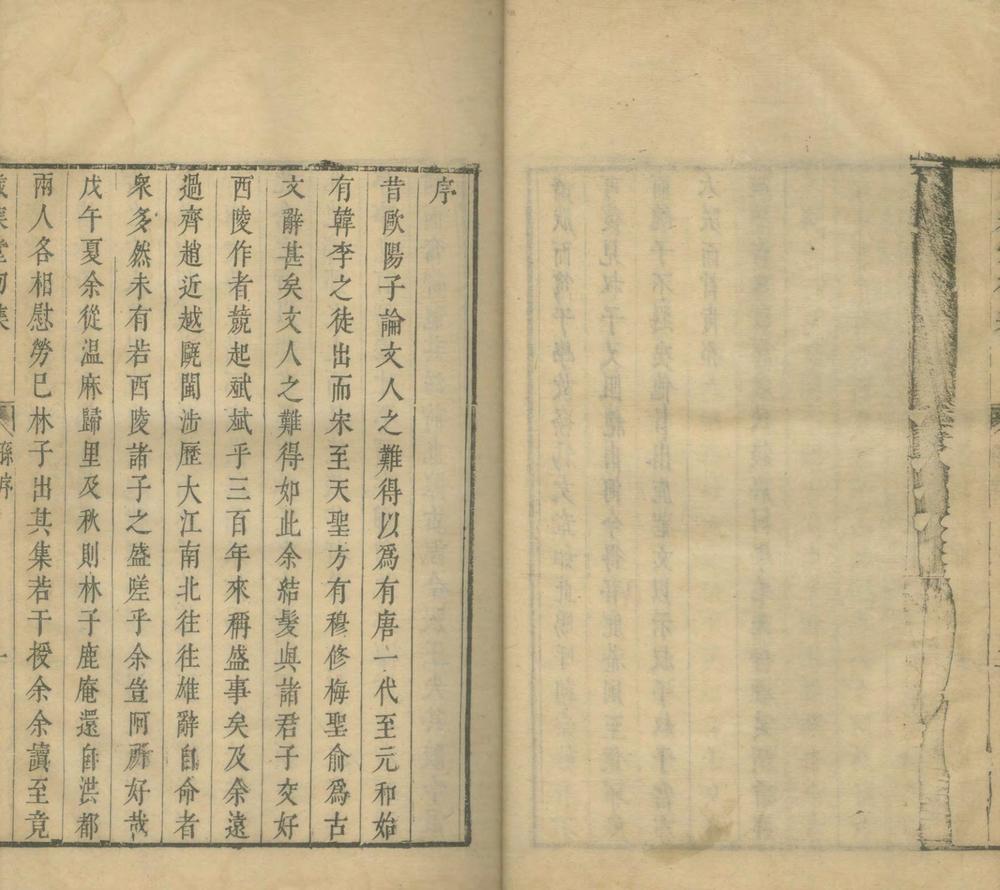 序
昔歐陽子論文人之難得以爲有唐一代至元和始
有韓李之徒出而宋至天聖方有穆修梅聖俞爲古
文辭甚矣文人之難得如此余結髮與諸君子交好
西陵作者競起斌斌乎三百年來稱盛事矣及余遠
過齊趙近越甌閩涉歷大江南北往往雄辭自命者
衆多然未有若西陵諸子之盛嗟乎余豈阿所好哉
戊午夏余從温麻歸里及秋則林子鹿庵還自洪都
兩人各相慰勞已林子出其集若干授余余讀至竟